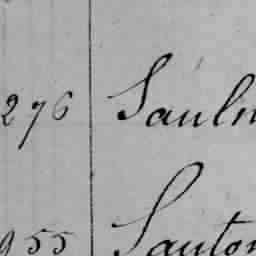 276 Sauln
955 Sauton